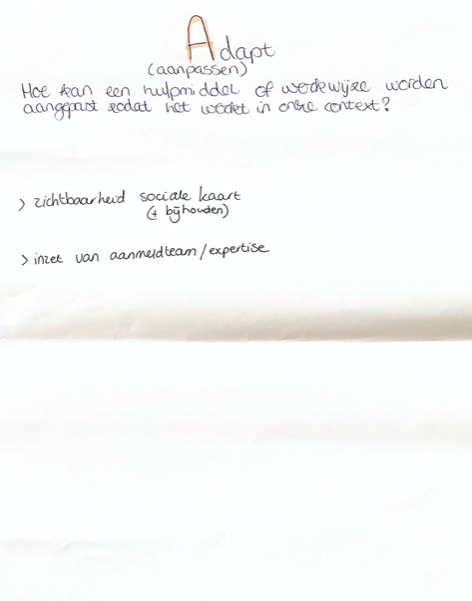 Adapt
(aanpassen)
Hoe kan een hulpmiddel of werkwijze worden
aangepast zodat het werkt in onze context?
> zichtbaarheid sociale kaart
(+ bijhouden)
> inzet van aanmeldteam/expertise